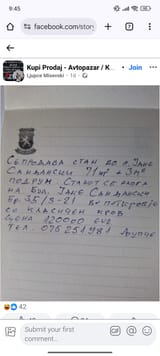 9:45
facebook.com/story
Kupi Prodaj - Avtopazar / K...
Join
Ljupce Misevski · 1d
СЕ ПРОДАВА СТАН ДО Р. ЈАНЕ
САНДАНСКИ 71 М² + 3 М²
ПОДРУМ. СТАНОТ СЕ НАОЃА
НА БУЛ. ЈАНЕ САНДАНСКИ
БР. 35/3-21
СО КЛАСИЧЕН КРОВ
ЦЕНА 120000 ЕУР
ТЕЛ. 076251981
42
Submit your first comment...